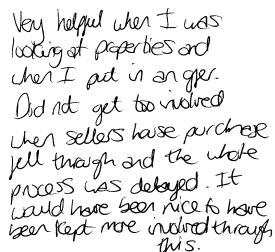 Very helpful when I was
looking at properties and
when I put in an offer.
Did not get too involved
when sellers house purchase
fell through and the whole
process was delayed. It
would have been nice to have
been kept more involved through
this.